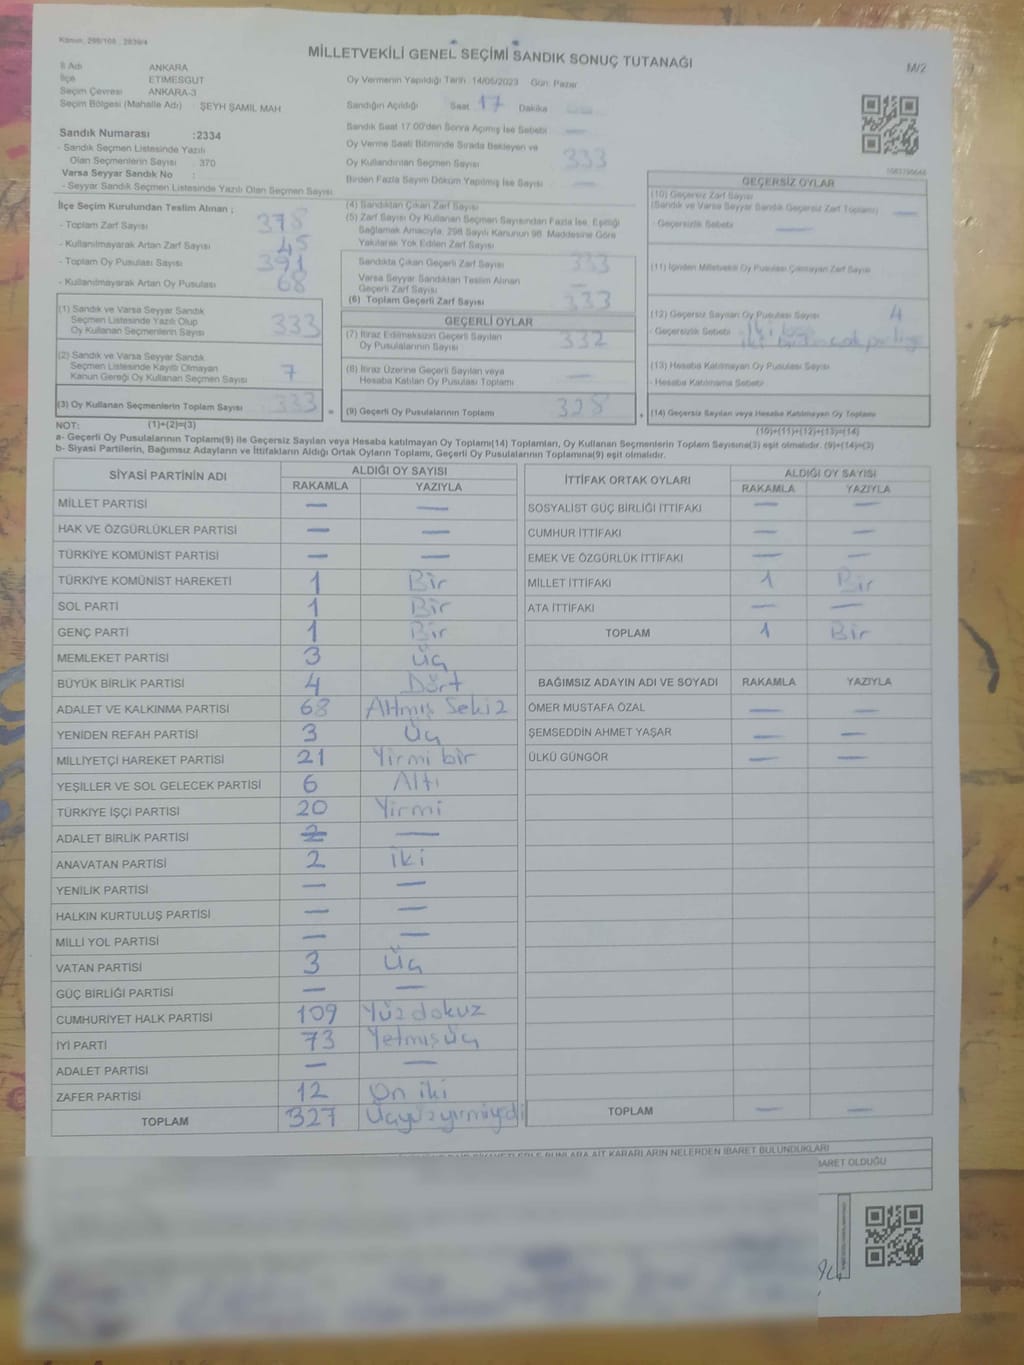 Kanun: 298/105 ; 2839/4
MİLLETVEKİLİ GENEL SEÇİMİ SANDIK SONUÇ TUTANAĞI
M/2
İl Adı ANKARA
İlçe ETIMESGUT
Seçim Çevresi ANKARA-3
Seçim Bölgesi (Mahalle Adı) : ŞEYH ŞAMIL MAH
Oy Vermenin Yapıldığı Tarih :14/05/2023 Gün: Pazar
Sandığın Açıldığı Saat 17 Dakika
Sandık Saat 17.00'den Sonra Açımış İse Sebebi —
Oy Verme Saati Bitiminde Sırada Bekleyen ve
Oy Kullandırılan Seçmen Sayısı 333
Birden Fazla Sayım Döküm Yapılmış İse Sayısı —
Sandık Numarası :2334
- Sandık Seçmen Listesinde Yazılı
Olan Seçmenlerin Sayısı : 370
Varsa Seyyar Sandık No :
- Seyyar Sandık Seçmen Listesinde Yazılı Olan Seçmen Sayısı
İlçe Seçim Kurulundan Teslim Alınan ;
- Toplam Zarf Sayısı 378
- Kullanılmayarak Artan Zarf Sayısı 45
- Toplam Oy Pusulası Sayısı 391
- Kullanılmayarak Artan Oy Pusulası 68
(1) Sandık ve Varsa Seyyar Sandık
Seçmen Listesinde Yazılı Olup
Oy Kullanan Seçmenlerin Sayısı 333
(2) Sandık ve Varsa Seyyar Sandık
Seçmen Listesinde Kayıtlı Olmayan
Kanun Gereği Oy Kullanan Seçmen Sayısı 7
(3) Oy Kullanan Seçmenlerin Toplam Sayısı 333
(4) Sandıktan Çıkan Zarf Sayısı
(5) Zarf Sayısı Oy Kullanan Seçmen Sayısından Fazla İse, Eşitliği
Sağlamak Amacıyla, 298 Sayılı Kanunun 98. Maddesine Göre
Yakılarak Yok Edilen Zarf Sayısı
Sandıkta Çıkan Geçerli Zarf Sayısı 333
Varsa Seyyar Sandıktan Teslim Alınan
Geçerli Zarf Sayısı —
(6) Toplam Geçerli Zarf Sayısı 333
GEÇERLİ OYLAR
(7) İtiraz Edilmeksizin Geçerli Sayılan
Oy Pusulalarının Sayısı 332
(8) İtiraz Üzerine Geçerli Sayılan veya
Hesaba Katılan Oy Pusulası Toplamı —
= (9) Geçerli Oy Pusulalarının Toplamı 328 +
GEÇERSİZ OYLAR
(10) Geçersiz Zarf Sayısı
(Sandık ve Varsa Seyyar Sandık Geçersiz Zarf Toplamı) —
- Geçersizlik Sebebi —
(11) İçinden Milletvekili Oy Pusulası Çıkmayan Zarf Sayısı
(12) Geçersiz Sayılan Oy Pusulası Sayısı 4
- Geçersizlik Sebebi
(13) Hesaba Katılmayan Oy Pusulası Sayısı
- Hesaba Katılmama Sebebi
(14) Geçersiz Sayılan veya Hesaba Katılmayan Oy Toplamı
NOT: (1)+(2)=(3)
(10)+(11)+(12)+(13)=(14)
a- Geçerli Oy Pusulalarının Toplamı(9) ile Geçersiz Sayılan veya Hesaba katılmayan Oy Toplamı(14) Toplamları, Oy Kullanan Seçmenlerin Toplam Sayısına(3) eşit olmalıdır. (9)+(14)=(3)
b- Siyasi Partilerin, Bağımsız Adayların ve İttifakların Aldığı Ortak Oyların Toplamı, Geçerli Oy Pusulalarının Toplamına(9) eşit olmalıdır.
SİYASİ PARTİNİN ADI ALDIĞI OY SAYISI
RAKAMLA YAZIYLA
MİLLET PARTİSİ — —
HAK VE ÖZGÜRLÜKLER PARTİSİ — —
TÜRKİYE KOMÜNİST PARTİSİ — —
TÜRKİYE KOMÜNİST HAREKETİ 1 Bir
SOL PARTİ 1 Bir
GENÇ PARTİ 1 Bir
MEMLEKET PARTİSİ 3 Üç
BÜYÜK BİRLİK PARTİSİ 4 Dört
ADALET VE KALKINMA PARTİSİ 68 Altmış Sekiz
YENİDEN REFAH PARTİSİ 3 Üç
MİLLİYETÇİ HAREKET PARTİSİ 21 Yirmi bir
YEŞİLLER VE SOL GELECEK PARTİSİ 6 Altı
TÜRKİYE İŞÇİ PARTİSİ 20 Yirmi
ADALET BİRLİK PARTİSİ 2 —
ANAVATAN PARTİSİ 2 iki
YENİLİK PARTİSİ — —
HALKIN KURTULUŞ PARTİSİ — —
MİLLİ YOL PARTİSİ — —
VATAN PARTİSİ 3 Üç
GÜÇ BİRLİĞİ PARTİSİ — —
CUMHURİYET HALK PARTİSİ 109 Yüzdokuz
İYİ PARTİ 73 Yetmişüç
ADALET PARTİSİ — —
ZAFER PARTİSİ 12 On iki
TOPLAM 327 Üçyüzyirmiyedi
İTTİFAK ORTAK OYLARI ALDIĞI OY SAYISI
RAKAMLA YAZIYLA
SOSYALİST GÜÇ BİRLİĞİ İTTİFAKI — —
CUMHUR İTTİFAKI — —
EMEK VE ÖZGÜRLÜK İTTİFAKI — —
MİLLET İTTİFAKI 1 Bir
ATA İTTİFAKI — —
TOPLAM 1 Bir
BAĞIMSIZ ADAYIN ADI VE SOYADI RAKAMLA YAZIYLA
ÖMER MUSTAFA ÖZAL — —
ŞEMSEDDİN AHMET YAŞAR — —
ÜLKÜ GÜNGÖR — —
TOPLAM — —
AİT KARARLARIN NELERDEN İBARET BULUNDUKLARI
BARET OLDUĞU